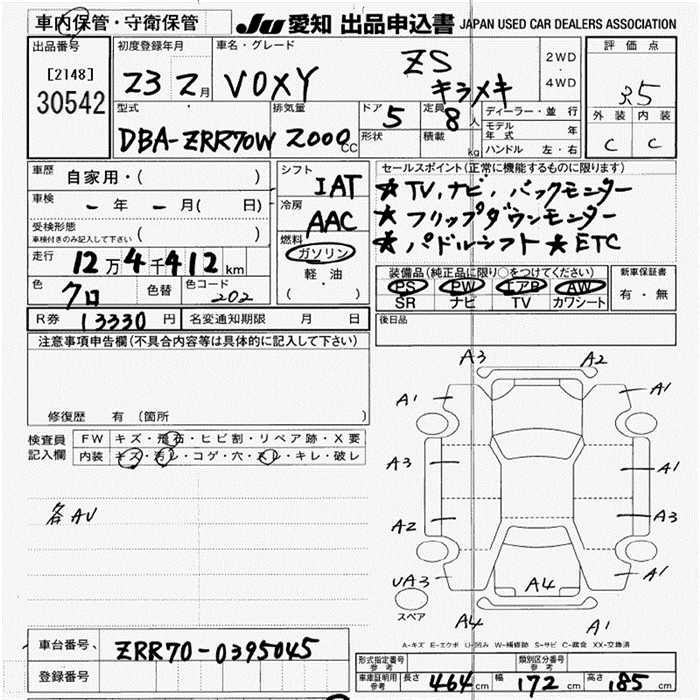 車内保管・守衛保管
JU 愛知 出品申込書 JAPAN USED CAR DEALERS ASSOCIATION
出品番号
[2148]
30542
初度登録年月
23 2月
車名・グレード
VOXY ZS
キラメキ
2WD
・
4WD
評価点
3.5
外装 内装
C C
型式
DBA-ZRR70W
排気量
2000cc
ドア 5
形状
定員 8人
積載 kg
ディーラー・並行
モデル年式 年
ハンドル 左・右
車歴 自家用・( )
車検 ー年 ー月( 日)
受検形態
車検付きのみ記入して下さい ( )
走行 12万4千412km
色 クロ 色替 色コード 202
シフト
IAT
冷房
AAC
燃料
ガソリン
軽・油
( )
セールスポイント(正常に機能するものに限ります)
★TV,ナビ,バックモニター
★フリップダウンモニター
★パドルシフト ★ETC
装備品(純正品に限り○をつけてください)
PS PW エアB AW
SR ナビ TV カワシート
新車保証書
有・無
R券 13330円 名変通知期限 月 日
後日品
注意事項申告欄(不具合内容等は具体的に記入して下さい)
修復歴 有(箇所 )
検査員記入欄
FW キズ・飛石・ヒビ割・リペア跡・X要
内装 キズ・汚レ・コゲ・穴・スレ・キレ・破レ
各AU
A3 A2
A1 A1
A3 A1
A2 A3
UA3 A4 A1
スペア
A4 A1
A-キズ E-エクボ U-凹み W-補修跡 S-サビ C-腐食 XX-交換済
車台番号 ZRR70-0395045
登録番号
形式指定番号 参考
類別区分番号 参考
車庫証明用 参考 長さ 464cm 幅 172cm 高さ 185cm